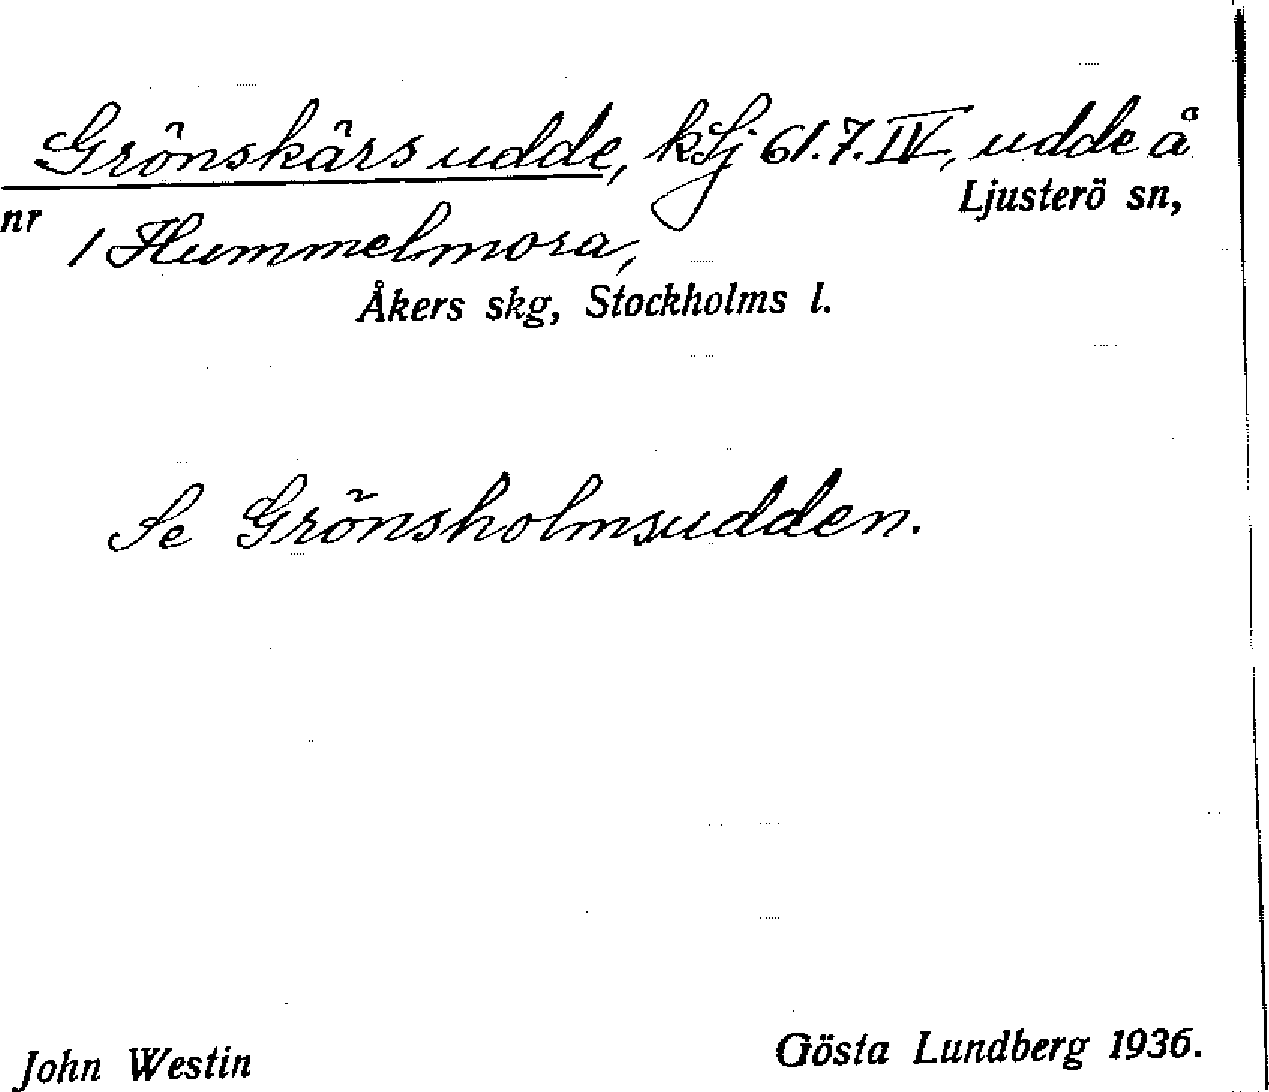 Grönskärs udde, kLj 61.7.IV, udde å
nr 1 Hummelmora, Ljusterö sn,
Åkers skg, Stockholms l.
Se Grönsholmsudden.
John Westin Gösta Lundberg 1936.